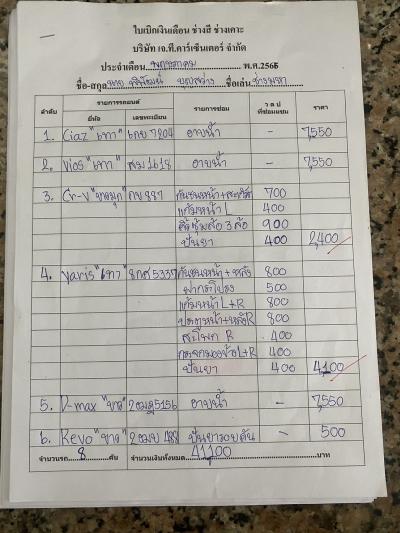 ใบเบิกเงินเดือน ช่างสี ช่างเคาะ
บริษัท เจ.ที.คาร์เซ็นเตอร์ จำกัด
ประจำเดือน พฤษภาคม พ.ศ.2566
ชื่อ-สกุล นาย บุญสว่าง ชื่อเล่น ช่าง
ลำดับ รายการรถยนต์ รายการซ่อม ว ด ป ที่ซ่อมเสร็จ ราคา
ยี่ห้อ เลขทะเบียน
1. Ciaz "เทา" 7204 อาบน้ำ - 7,550
2. Vios "เทา" 1618 อาบน้ำ - 7,550
3. Cr-v "ขาวมุก" กข 887 กันชนหน้า+ 700
แก้มหน้า L 400
คิ้วซุ้มล้อ 3 ล้อ 900
ปั่นยา 400 2,400
4. Yaris "เทา" 8กศ 5337 กันชนหน้า+หลัง 800
ฝากระโปรง 500
แก้มหน้า L+R 800
ประตูหน้า+หลัง R 800
สะโพก R 400
กระจกมองข้าง L+R 400
ปั่นยา 400 4,100
5. D-max "ขาว" 5156 อาบน้ำ - 7,550
6. Revo "ขาว" 488 ปั่นยารอบคัน - 500
จำนวนรถ 8 คัน จำนวนเงินทั้งหมด 41,100 บาท